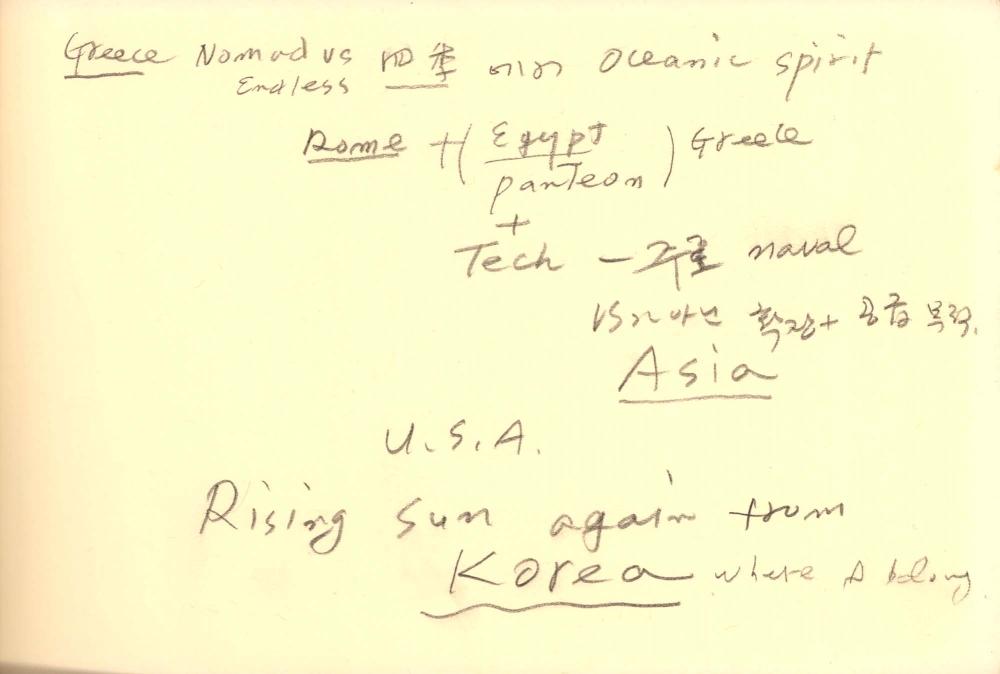 Greece Nomad vs 四季 에서 Oceanic spirit
Endless
Rome + (Egypt) Greece
panTeon
+
Tech - 주로 naval
확장 + 공급
Asia
U.S.A.
Rising sun again from
Korea where belong